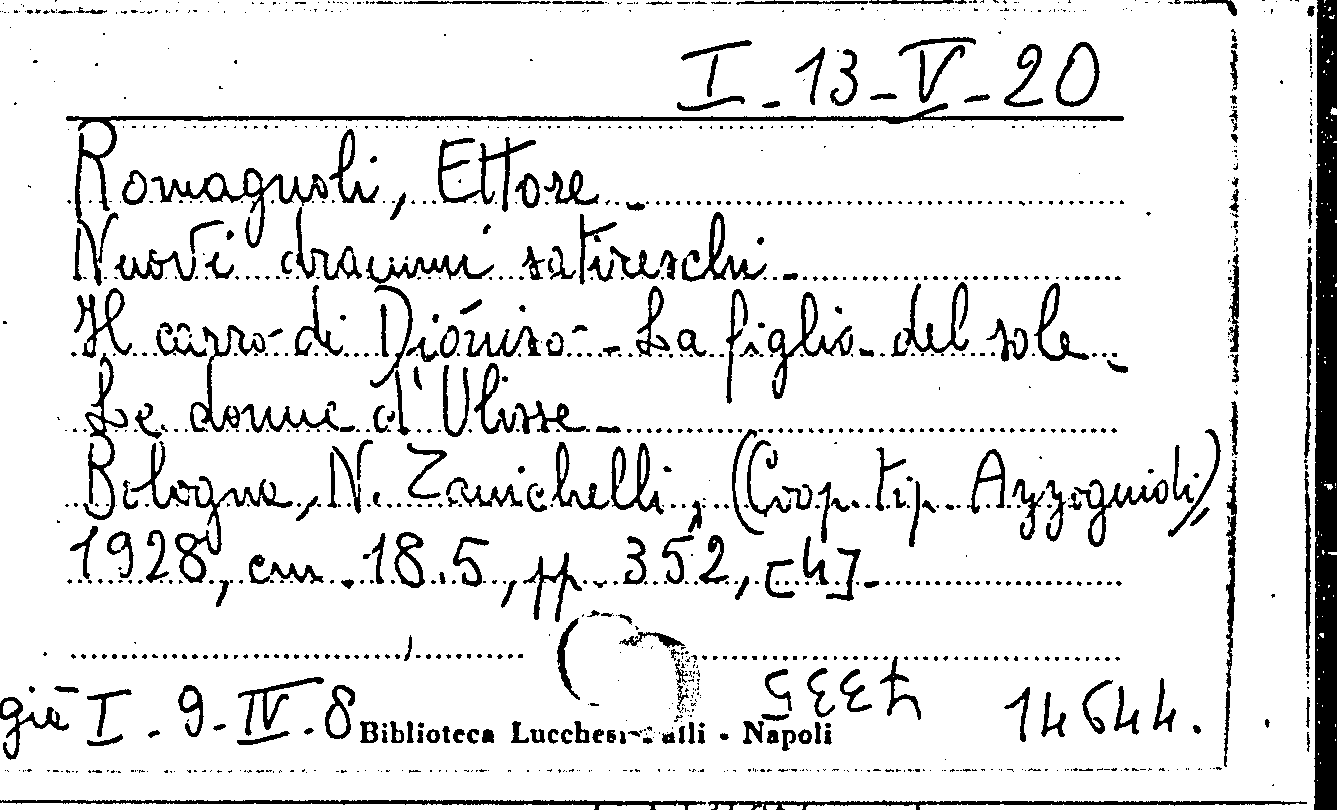 I-13-V-20
Romagnoli, Ettore -
Nuovi drammi satireschi -
Il carro di Dióniso - La figlia del sole -
Le donne d'Ulisse -
Bologna, N. Zanichelli, (Coop. tip. Azzoguidi),
1928, cm. 18.5, pp. 352, [4].
già I - 9 - IV - 8 Biblioteca Lucchesi-Palli - Napoli 14644.